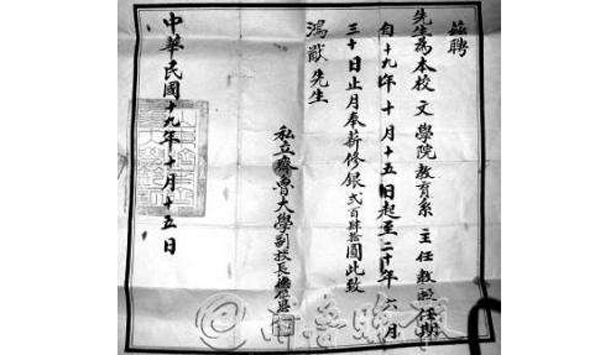 茲聘
先生為本校文學院教育系主任教授任期
自十九年十月十五日起至二十年六月
三十日止月奉薪修銀弍百肆拾圓此致
鴻猷先生
私立齊魯大學副校長
中華民國十九年十月十五日
@齊魯晚報